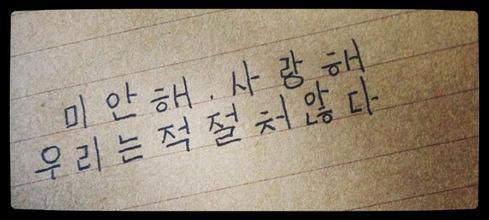 미안해. 사랑해
우리는 적절처않다